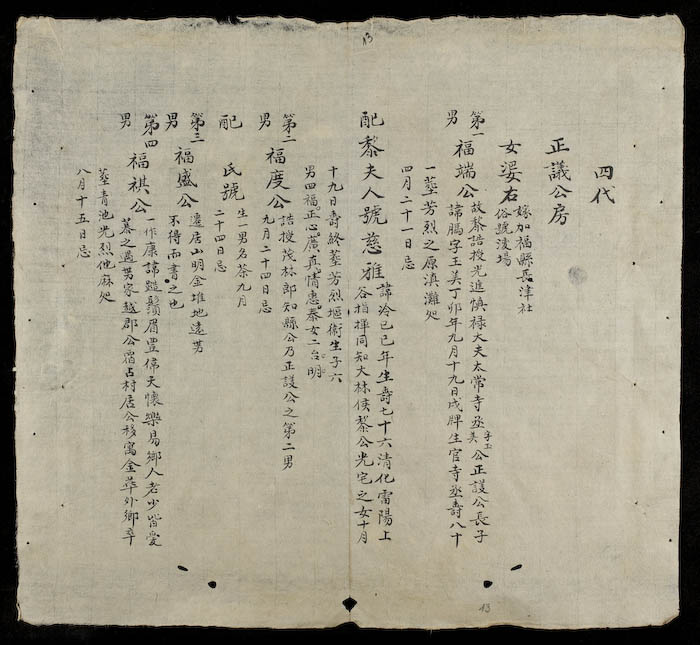 13
四代
正議公房
女婆右
嫁加福縣長津社
俗號淩場
第一
男
福端公
故黎誥授光進慎祿大夫太常寺丞
字玉
美
公正護公長子
諱鵑字玉美丁卯年九月十九日戌牌生官寺丞壽八十
一塟芳烈之原滇灘処
四月二十一日忌
配黎夫人號慈雅
諱冷己巳年生壽七十六清化雷陽上
谷指揮同知大林侯黎公光宅之女十月
十九日壽終塟芳烈堰衛生子六
男四福正心廣真情惠泰女二台明
第二
男
福度公
誥授茂林郎知縣公乃正護公之第二男
九月二十四日忌
配 氏號
生一男名榮九月
二十四日忌
第三
男
福盛公
遷居山明金堆地遠男
不得而書之也
第四
男
福祺公
一作康諱豔鬚眉豊偉天懷樂易鄉人老少皆愛
慕之過男家越郡公宿占村居公移寓金華外鄉卒
塟青池光烈他麻処
八月十五日忌
13